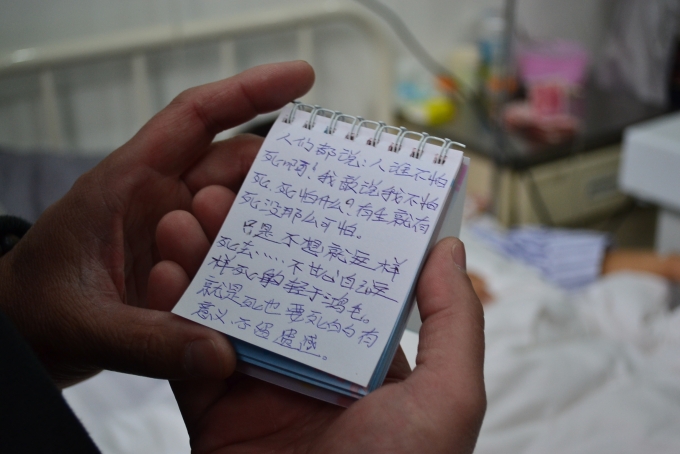 人们都说:人谁不怕
死啊!我敢说我不怕
死、死怕什么?有生就有
死没那么可怕。
只是不想就这样
死去……不甘心自己这
样死的轻于鸿毛。
就是死也要死的有
意义、不留遗憾。